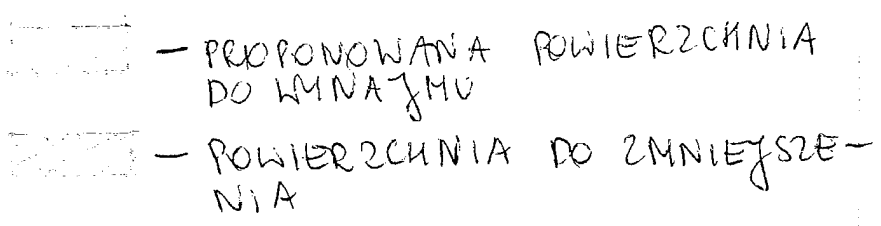 – PROPONOWANA POWIERZCHNIA
DO WYNAJMU
– POWIERZCHNIA DO ZMNIEJSZE–
NIA